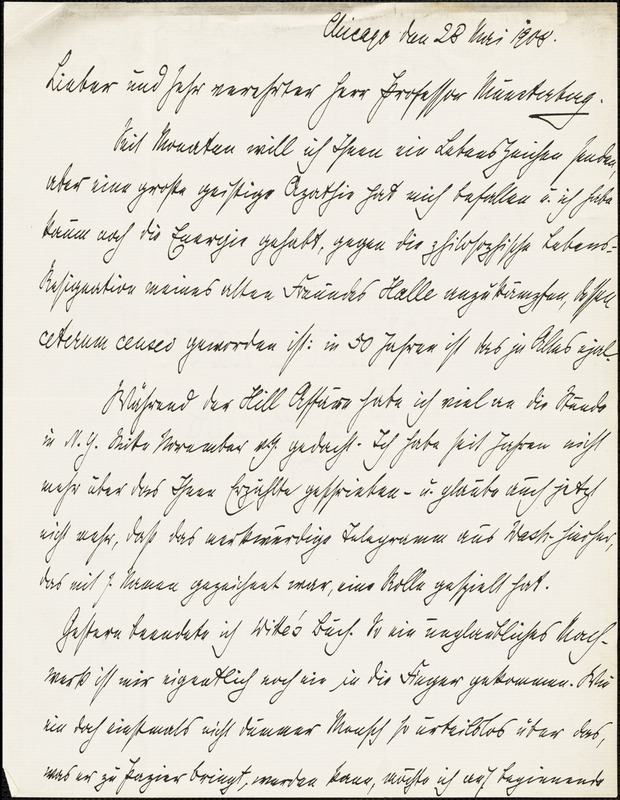 Chicago den 28 Mai 1908.
Lieber und sehr verehrter Herr Professor Münsterberg.
Seit Monaten will ich Ihnen ein Lebenszeichen senden,
aber eine große geistige Apathie hat mich befallen u. ich habe
kaum noch die Energie gehabt, gegen die philosophische Lebens-
Resignation meines alten Freundes Halle anzukämpfen, dessen
ceterum censeo geworden ist: in 50 Jahren ist das ja Alles egal.
Während der Hill Affäre habe ich viel an die Stunde
in N.Y. Mitte November gedacht. Ich habe seit Jahren nicht
mehr über das Ihnen Erzählte geschrieben - u. glaube auch jetzt
nicht mehr, daß das merkwürdige Telegramm aus Wash. hierher,
das mit Namen gezeichnet war, eine Rolle gespielt hat.
Gestern beendete ich Witte's Buch. So ein unglaubliches Mach-
werk ist mir eigentlich noch nie in die Finger gekommen. Wie
ein doch einstmals nicht dummer Mensch so urteilslos über das,
was er zu Papier bringt, werden kann, möchte ich auf beginnende